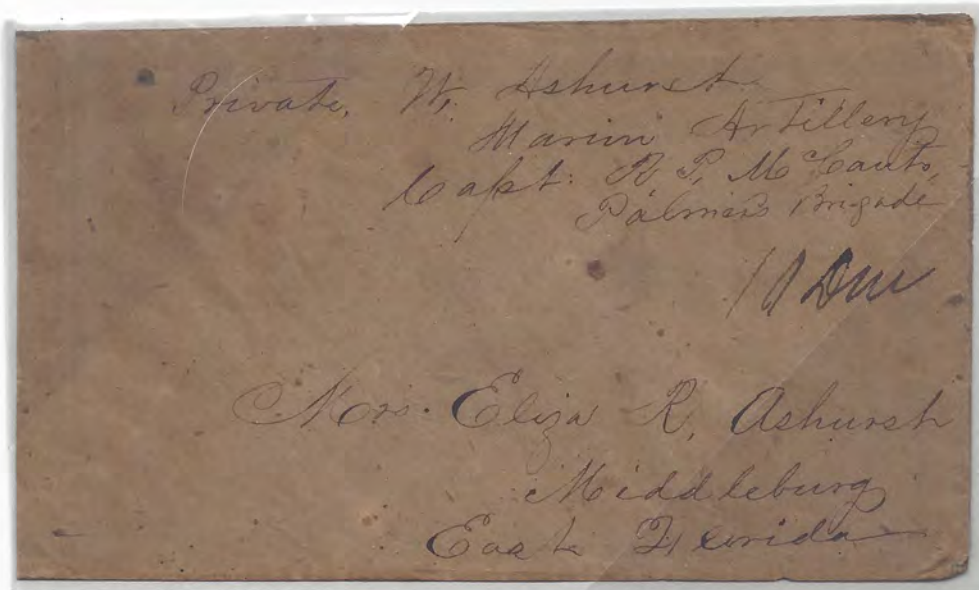 Private, W. Ashurst
Marion Artillery
Capt. R. P. McCants,
Palmer's Brigade
10 Due
Mrs. Eliza R. Ashurst
Middleburg
East Florida